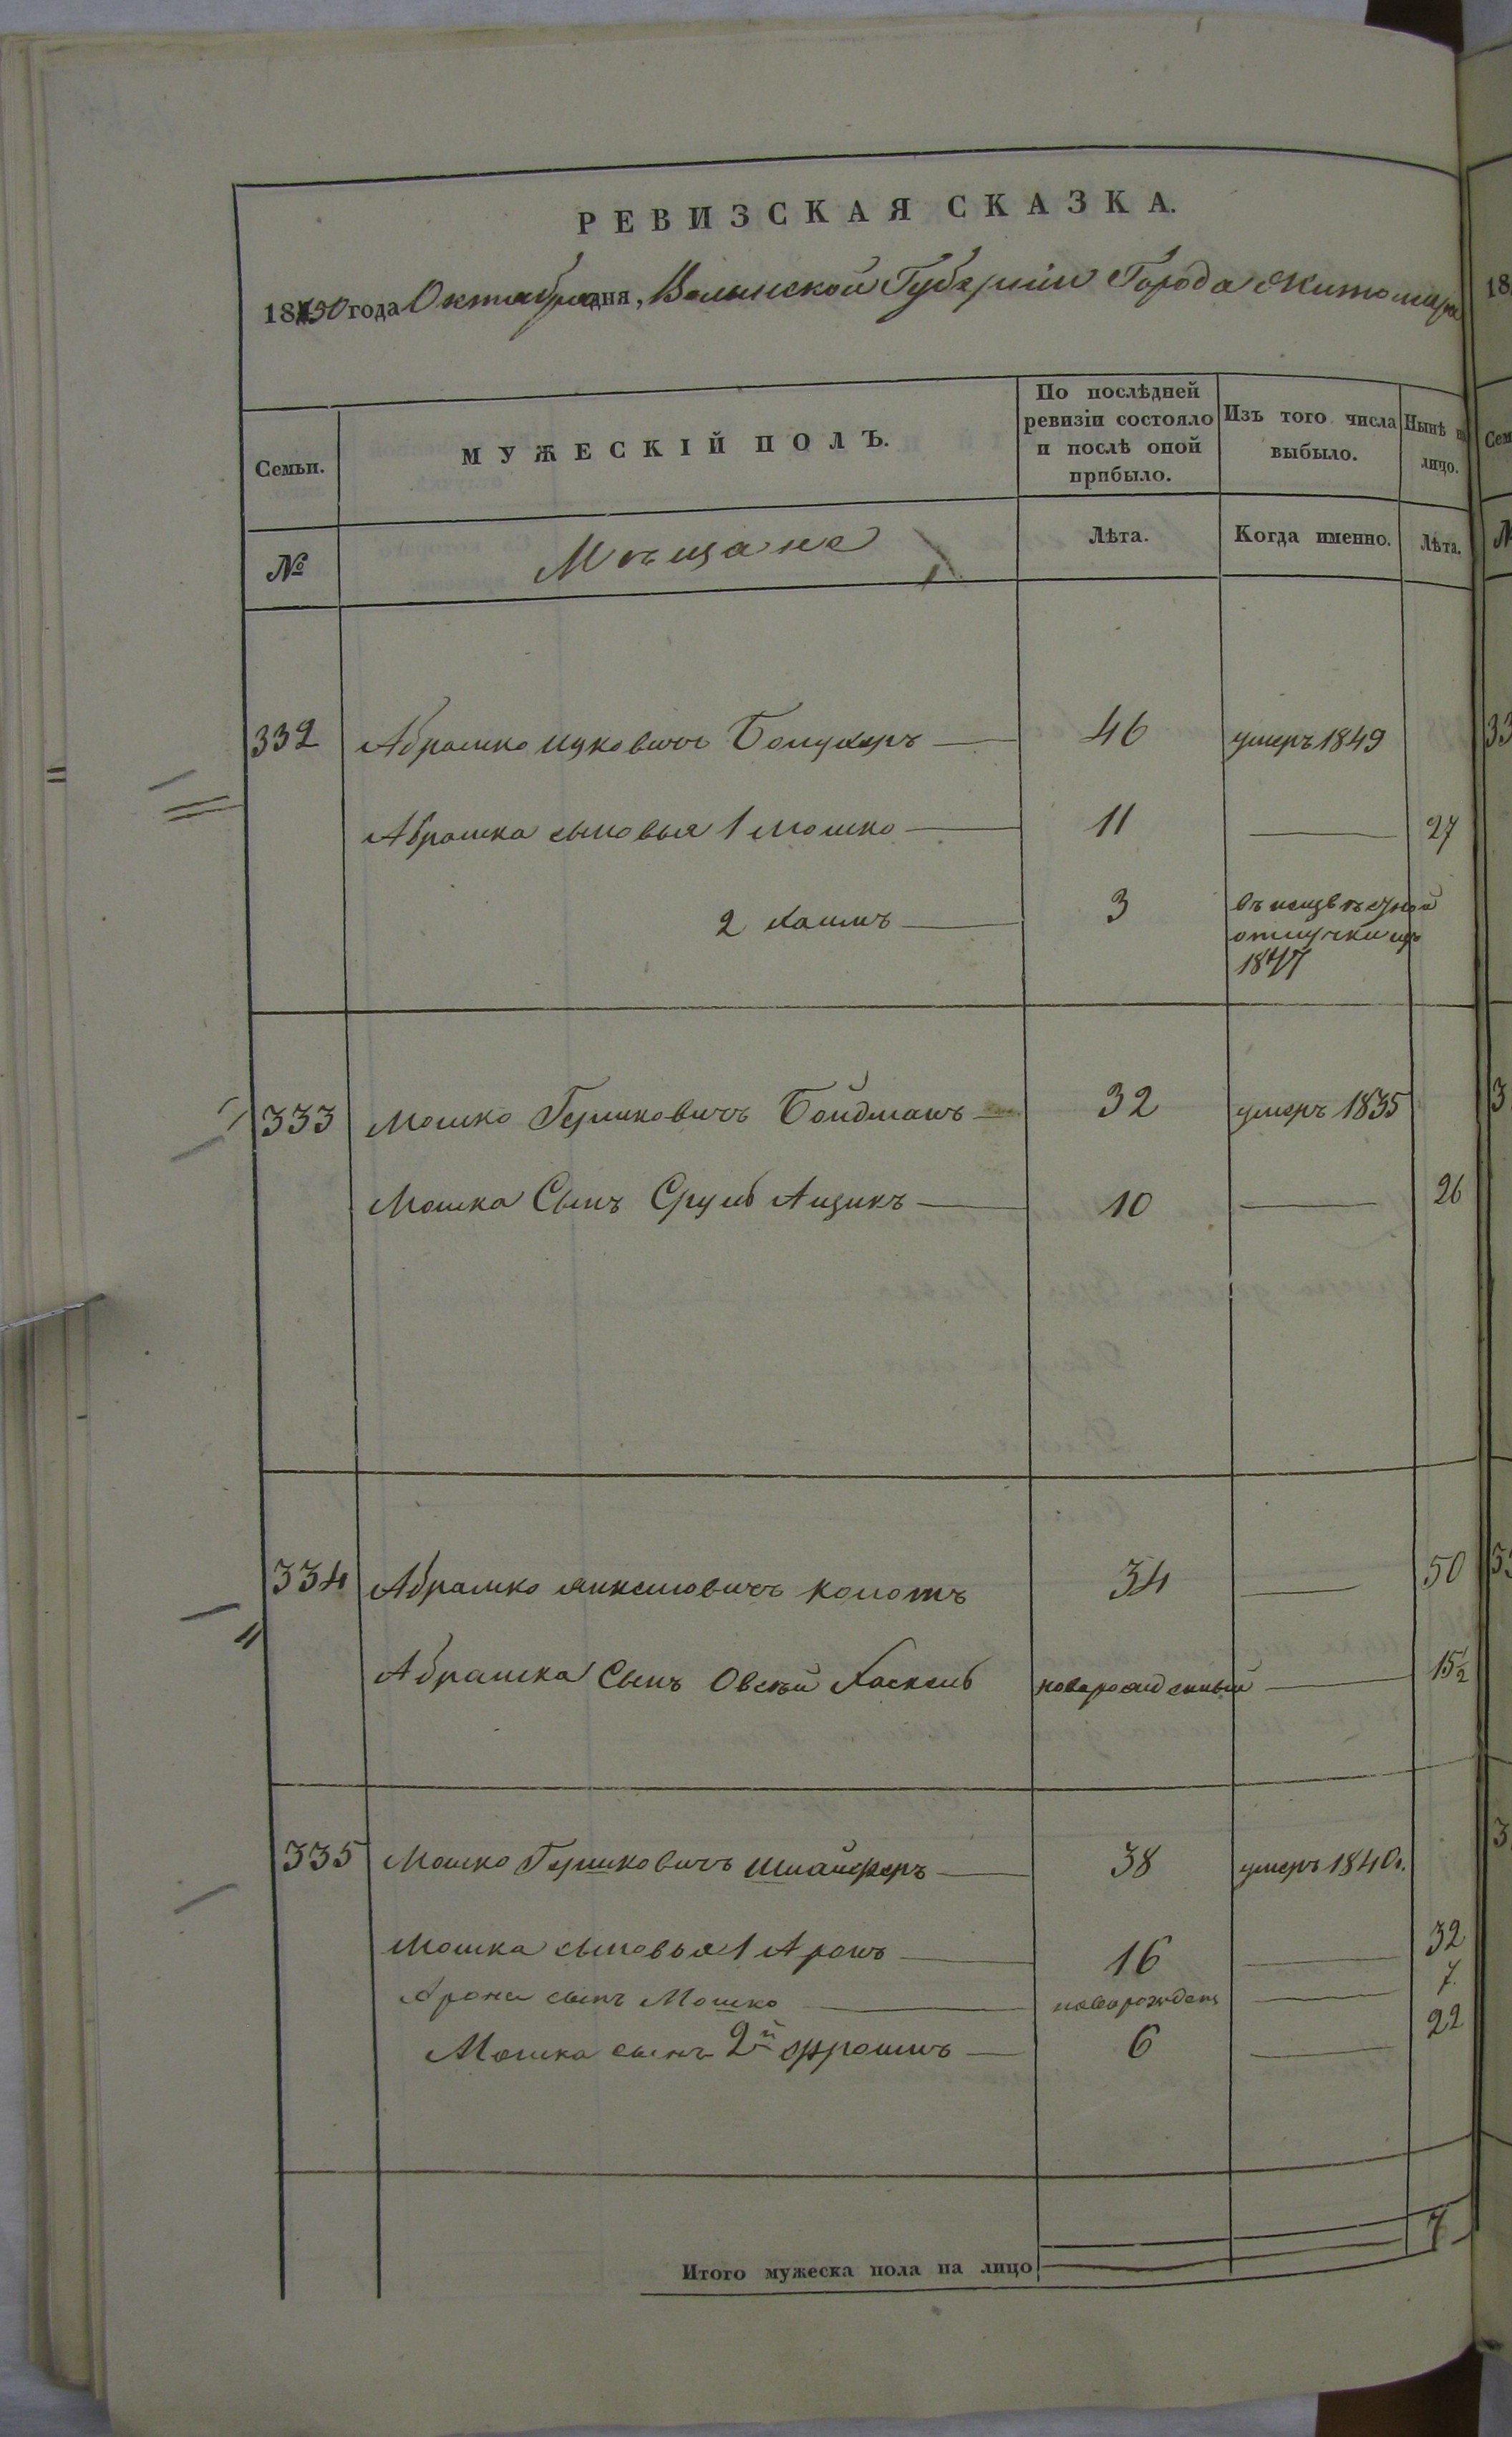 РЕВИЗСКАЯ СКАЗКА.
1850 года Октября дня, Волынской Губерніи Города Житомира
Семьи.
МУЖЕСКІЙ ПОЛЪ.
По послѣдней ревизіи состояло и послѣ оной прибыло.
Изъ того числа выбыло.
Нынѣ на лицо.
№
Мѣщане
Лѣта.
Когда именно.
Лѣта.
332 Абрамко Ицковичъ 46 умеръ 1849
Абрамка сыновья 1 Мошко 11 27
2 Хаимъ 3 въ неизвѣстной
отлучки
1847
333 Мошко Гершковичъ Бойдманъ 32 умеръ 1835
Мошка Сынъ Сруль Аицикъ 10 26
334 Абрамко Янкелювичъ Колотъ 34 50
Абрамка Сынъ Овсѣй Хаскель новорожденный 15½
335 Мошко Гершковичъ Шлайферъ 38 умеръ 1840г.
Мошка сыновья 1 Аронъ 16 32
Арона сынъ Мошко новорожден 7
Мошка сынъ 2й Фроимъ 6 22
Итого мужеска пола на лицо 7